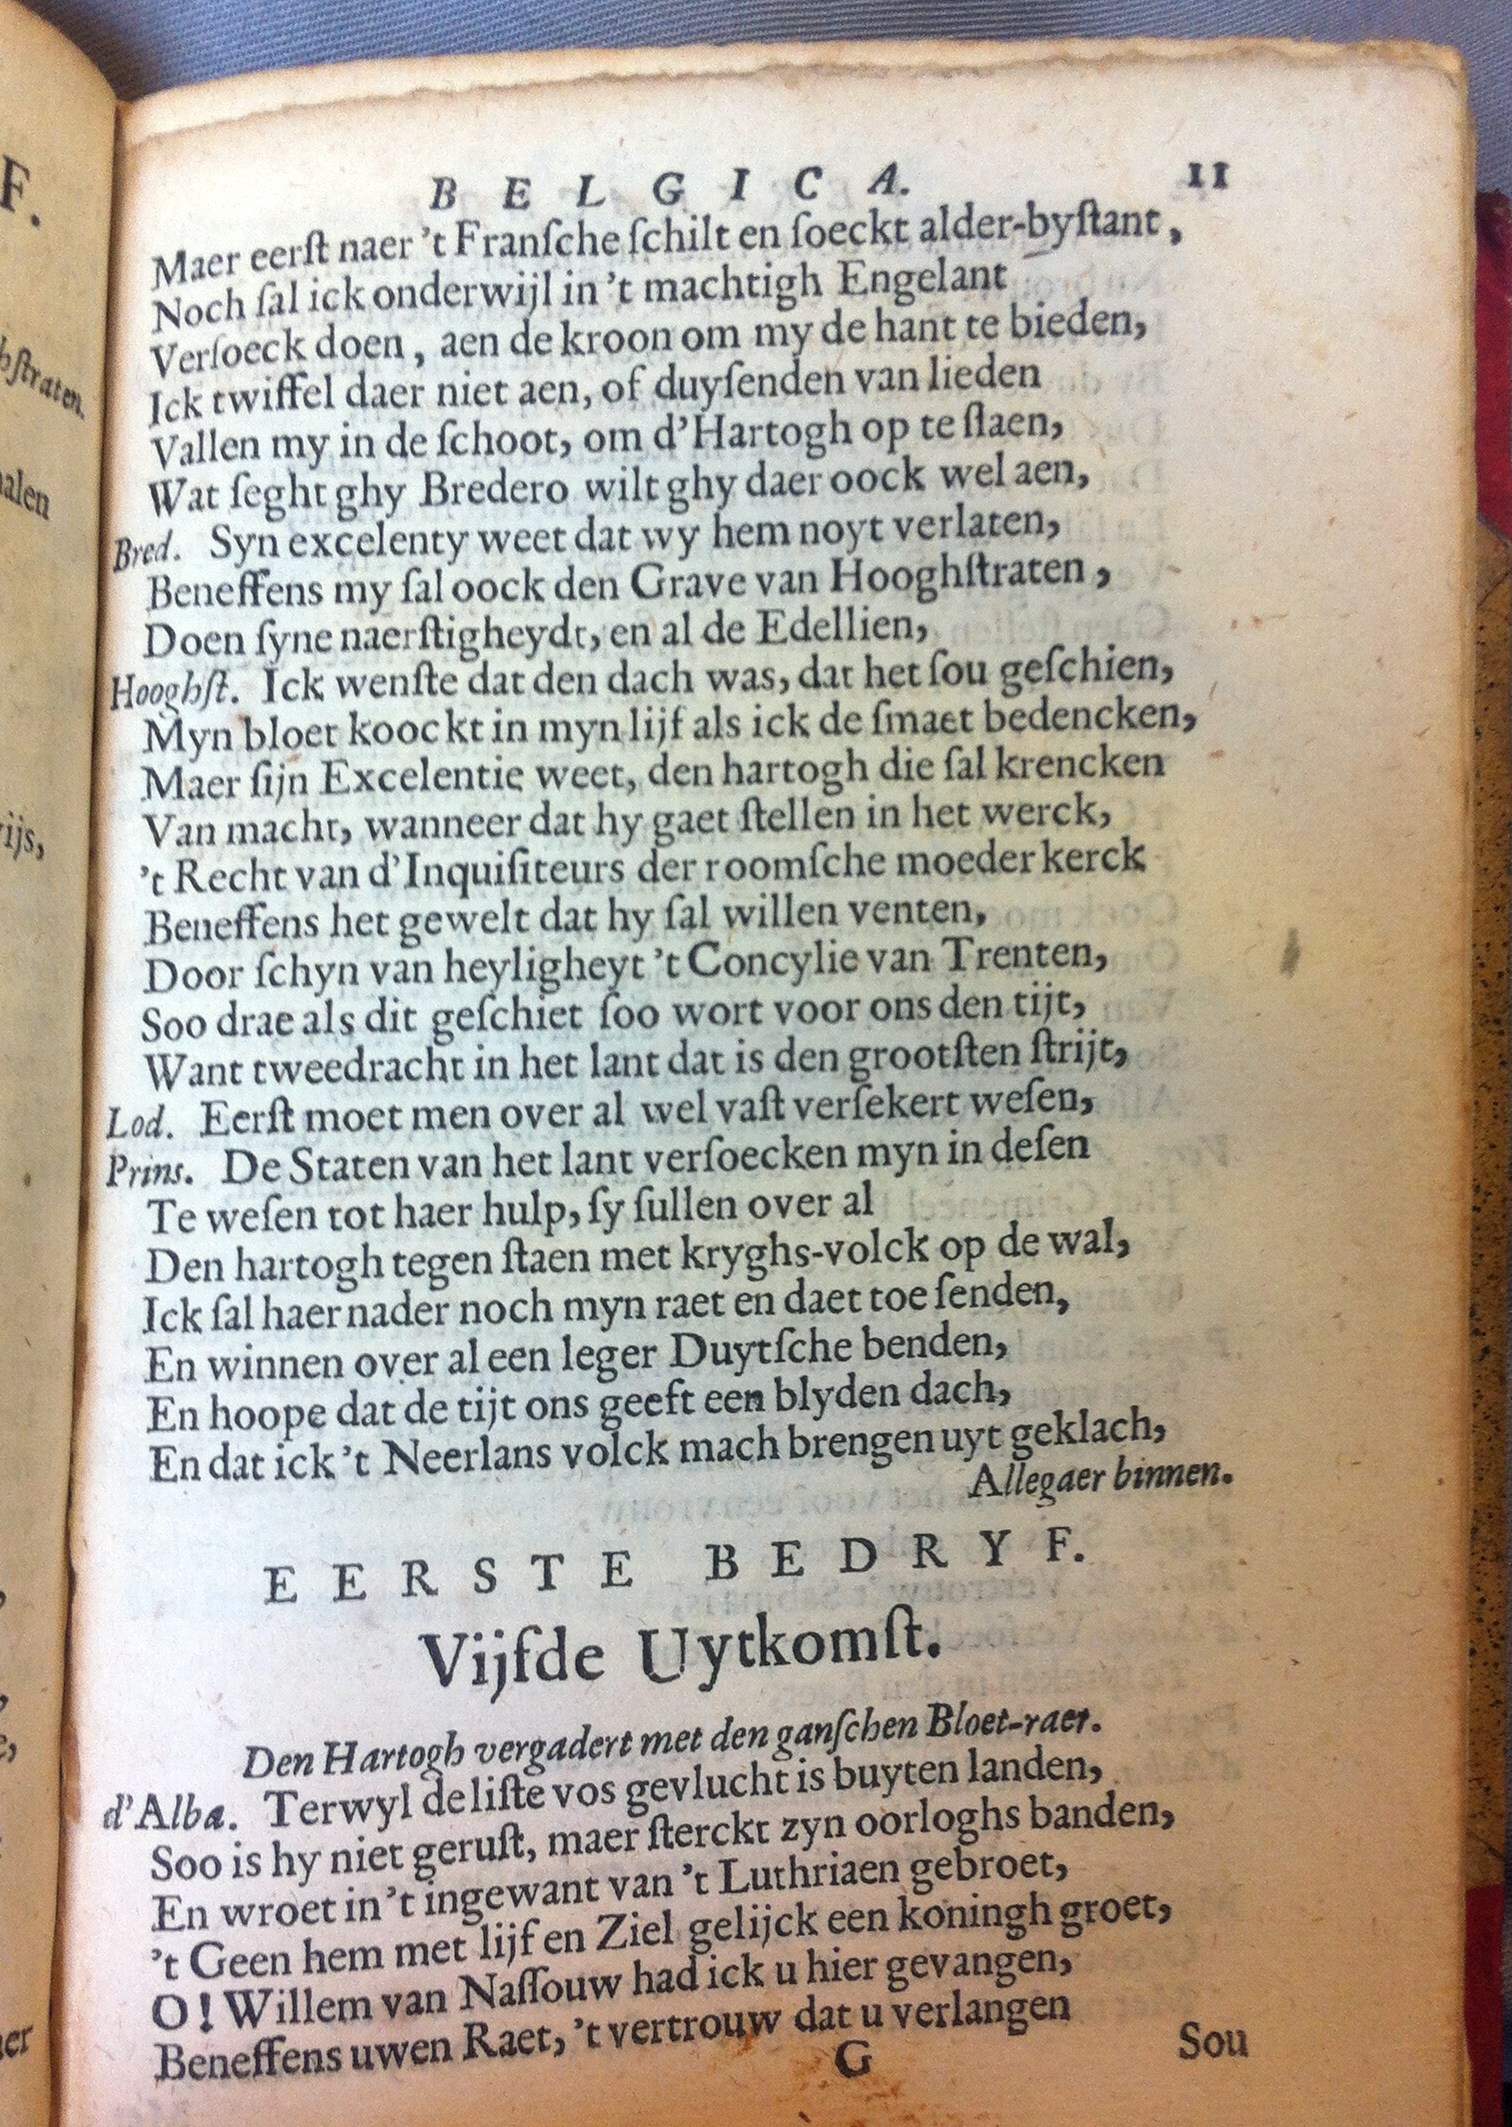 B E L G I C A. 11
Maer eerſt naer 't Franſche ſchilt en ſoeckt alder-byſtant,
Noch ſal ick onderwijl in 't machtigh Engelant
Verſoeck doen, aen de kroon om my de hant te bieden,
Ick twiffel daer niet aen, of duyſenden van lieden
Vallen my in de ſchoot, om d'Hartogh op te ſlaen,
Wat ſeght ghy Bredero wilt ghy daer oock wel aen,
Bred. Syn excelenty weet dat wy hem noyt verlaten,
Beneffens my ſal oock den Grave van Hooghſtraten,
Doen ſyne naerſtigheydt, en al de Edellien,
Hooghſt. Ick wenſte dat den dach was, dat het ſou geſchien,
Myn bloet koockt in myn lijf als ick de ſmaet bedencken,
Maer ſijn Excelentie weet, den hartogh die ſal krencken
Van macht, wanneer dat hy gaet ſtellen in het werck,
't Recht van d'Inquiſiteurs der roomſche moeder kerck
Beneffens het gewelt dat hy ſal willen venten,
Door ſchyn van heyligheyt 't Concylie van Trenten,
Soo drae als dit geſchiet ſoo wort voor ons den tijt,
Want tweedracht in het lant dat is den grootſten ſtrijt,
Lod. Eerſt moet men over al wel vaſt verſekert weſen,
Prins. De Staten van het lant verſoecken myn in deſen
Te weſen tot haer hulp, ſy ſullen over al
Den hartogh tegen ſtaen met kryghs-volck op de wal,
Ick ſal haer nader noch myn raet en daet toe ſenden,
En winnen over al een leger Duytſche benden,
En hoope dat de tijt ons geeft een blyden dach,
En dat ick 't Neerlans volck mach brengen uyt geklach,
Allegaer binnen.
E E R S T E B E D R Y F.
Vijfde Uytkomſt.
Den Hartogh vergadert met den ganſchen Bloet-raet.
d'Alba. Terwyl de liſte vos gevlucht is buyten landen,
Soo is hy niet geruſt, maer ſterckt zyn oorloghs banden,
En wroet in 't ingewant van 't Luthriaen gebroet,
't Geen hem met lijf en Ziel gelijck een koningh groet,
O! Willem van Naſſouw had ick u hier gevangen,
Beneffens uwen Raet, 't vertrouw dat u verlangen
G Sou
F.
hſtraten.
alen
ijs,
er